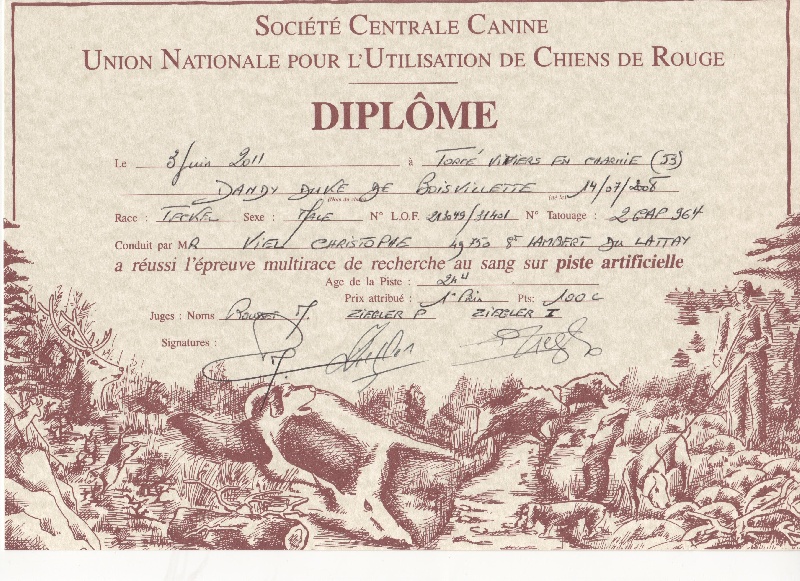 SOCIÉTÉ CENTRALE CANINE
UNION NATIONALE POUR L'UTILISATION DE CHIENS DE ROUGE
DIPLÔME
Le 3 Juin 2011 à TORCÉ VIVIERS EN CHARNIE (53)
DANDY DUKE DE BOISVILLETTE 14/07/2008
Race : TECKEL Sexe : MALE N° L.O.F. 213049/31401 N° Tatouage : 2GAP 964
Conduit par MR VIEL CHRISTOPHE 49 750 ST LAMBERT DU LATTAY
a réussi l'épreuve multirace de recherche au sang sur piste artificielle
Age de la Piste : 24H
Prix attribué : 1er Prix Pts: 100
Juges : Noms J. ZIEGLER P ZIEGLER I
Signatures :